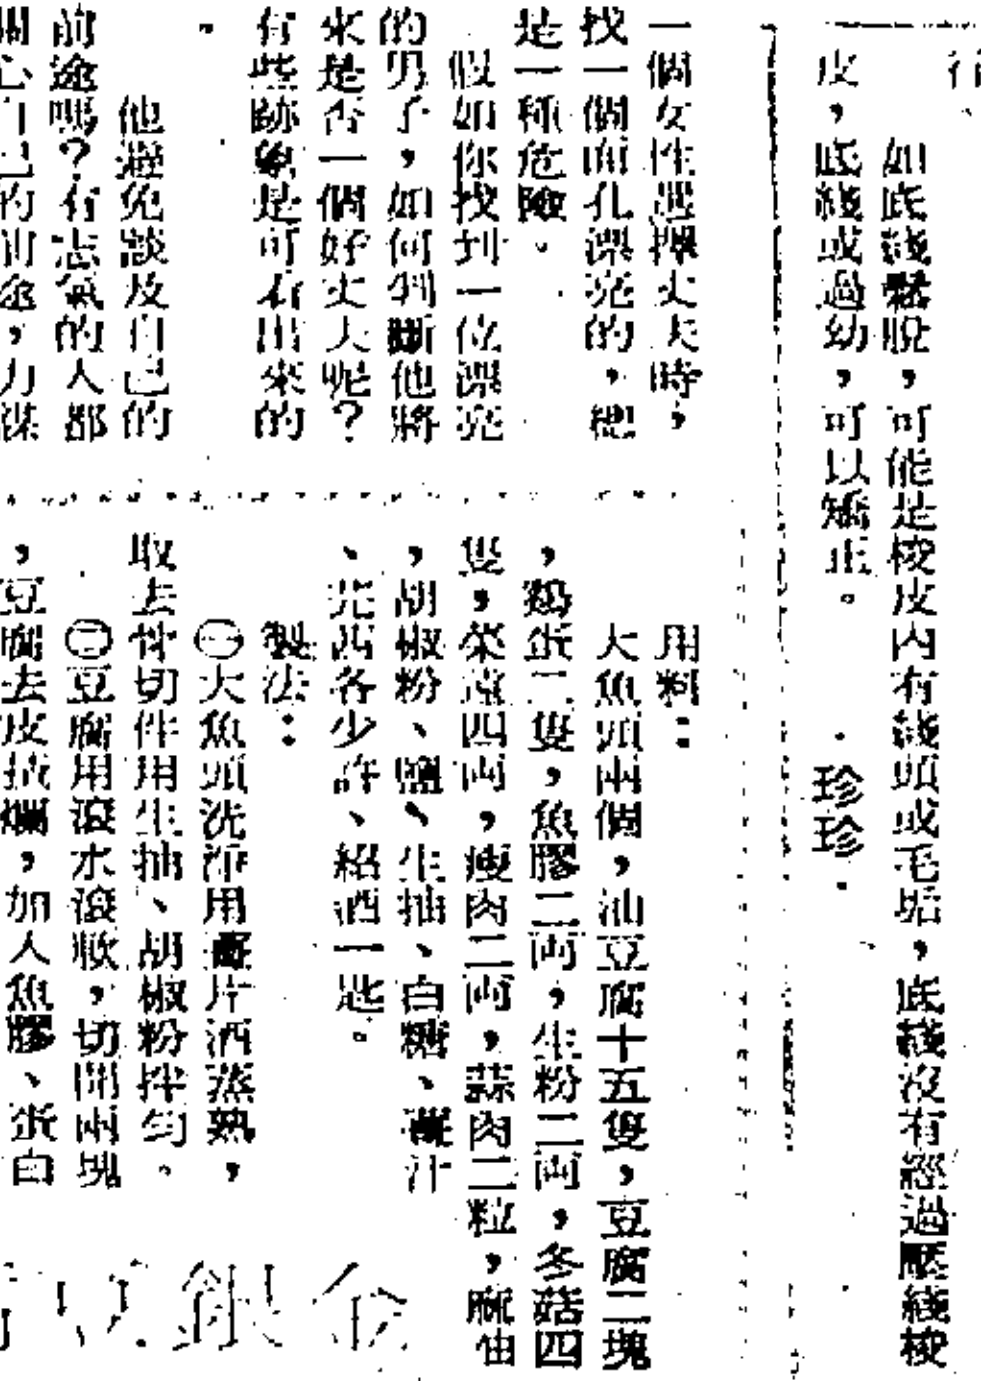 行、
如底綫鬆脫，可能是梭皮內有綫頭或毛垢，底綫沒有經過壓綫梭
皮，底綫或過幼，可以矯正。
·珍珍·
一個女性選擇丈夫時，
找一個面孔漂亮的，總
是一種危險。
假如你找到一位漂亮
的男子，如何判斷他將
來是否一個好丈夫呢？
有些跡象是可看出來的
。
他避免談及自己的
前途嗎？有志氣的人都
關心自己的前途，力謀
用料：
大魚頭兩個，油豆腐十五隻，豆腐二塊
，鷄蛋二隻，魚膠二両，生粉二両，冬菇四
隻，菜遠四両，瘦肉二両，蒜肉二粒，麻油
，胡椒粉、鹽、生抽、白糖、薑汁
、芫茜各少許、紹酒一匙。
製法：
㊀大魚頭洗淨用薑片酒蒸熟，
取去骨切件用生抽、胡椒粉拌勻。
㊁豆腐用滾水滾、切開兩塊
，豆腐去皮爛，加入魚膠、蛋白
金銀豆